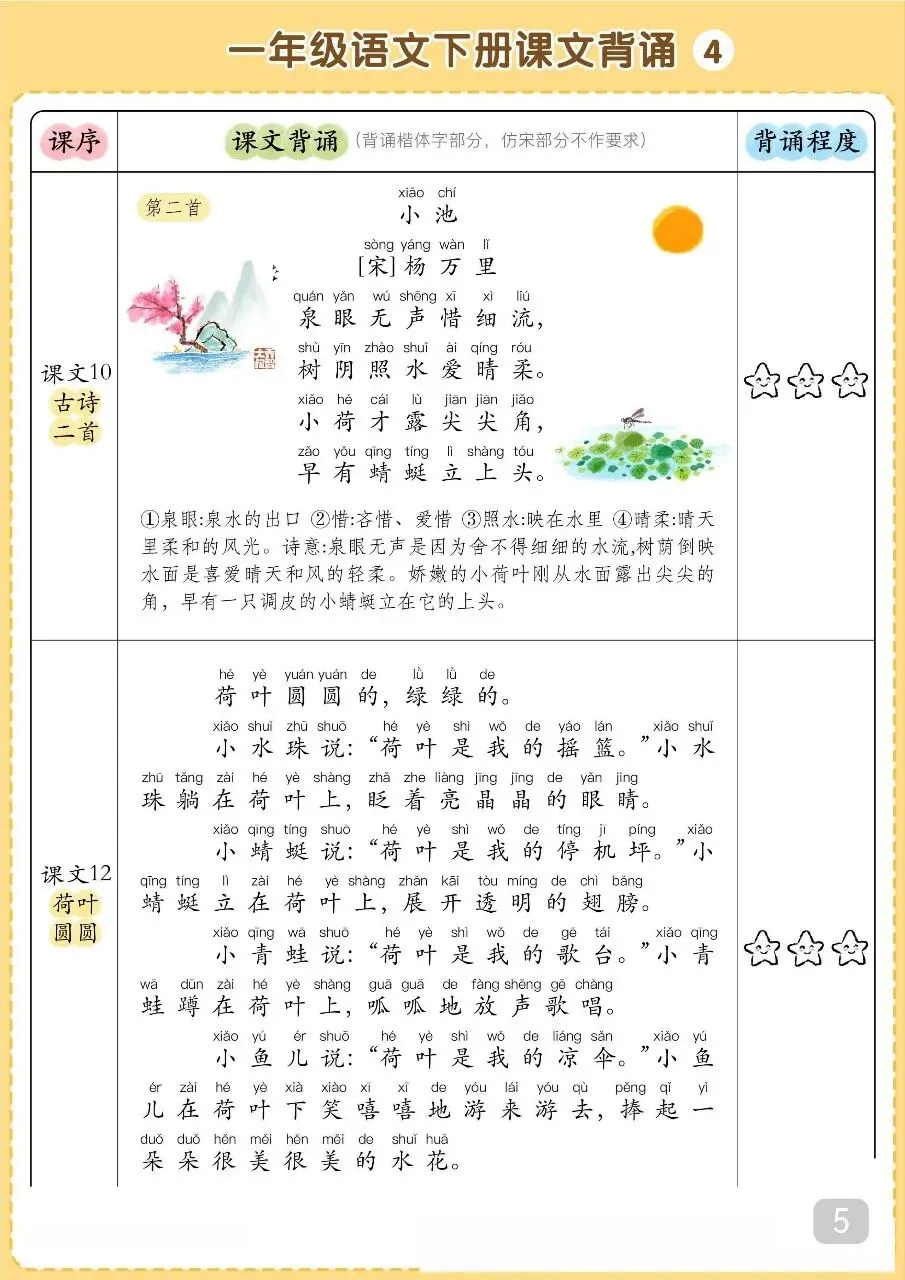 一年级语文下册课文背诵 4
课序
课文背诵 (背诵楷体字部分，仿宋部分不作要求)
背诵程度
课文10
古诗
二首
第二首
xiǎo chí
小池
sòng yáng wàn lǐ
[宋]杨万里
quán yǎn wú shēng xī xì liú
泉眼无声惜细流，
shù yīn zhào shuǐ ài qíng róu
树阴照水爱晴柔。
xiǎo hé cái lù jiān jiān jiǎo
小荷才露尖尖角，
zǎo yǒu qīng tíng lì shàng tóu
早有蜻蜓立上头。
①泉眼:泉水的出口 ②惜:吝惜、爱惜 ③照水:映在水里 ④晴柔:晴天
里柔和的风光。诗意:泉眼无声是因为舍不得细细的水流,树荫倒映
水面是喜爱晴天和风的轻柔。娇嫩的小荷叶刚从水面露出尖尖的
角，早有一只调皮的小蜻蜓立在它的上头。
课文12
荷叶
圆圆
hé yè yuán yuán de lǜ lǜ de
荷叶圆圆的，绿绿的。
xiǎo shuǐ zhū shuō hé yè shì wǒ de yáo lán xiǎo shuǐ
小水珠说：“荷叶是我的摇篮。”小水
zhū tǎng zài hé yè shàng zhǎ zhe liàng jīng jīng de yǎn jing
珠躺在荷叶上，眨着亮晶晶的眼睛。
xiǎo qīng tíng shuō hé yè shì wǒ de tíng jī píng xiǎo
小蜻蜓说：“荷叶是我的停机坪。”小
qīng tíng lì zài hé yè shàng zhǎn kāi tòu míng de chì bǎng
蜻蜓立在荷叶上，展开透明的翅膀。
xiǎo qīng wā shuō hé yè shì wǒ de gē tái xiǎo qīng
小青蛙说：“荷叶是我的歌台。”小青
wā dūn zài hé yè shàng guā guā de fàng shēng gē chàng
蛙蹲在荷叶上，呱呱地放声歌唱。
xiǎo yú ér shuō hé yè shì wǒ de liáng sǎn xiǎo yú
小鱼儿说：“荷叶是我的凉伞。”小鱼
ér zài hé yè xià xiào xī xī de yóu lái yóu qù pěng qǐ yì
儿在荷叶下笑嘻嘻地游来游去，捧起一
duǒ duǒ hěn měi hěn měi de shuǐ huā
朵朵很美很美的水花。
5